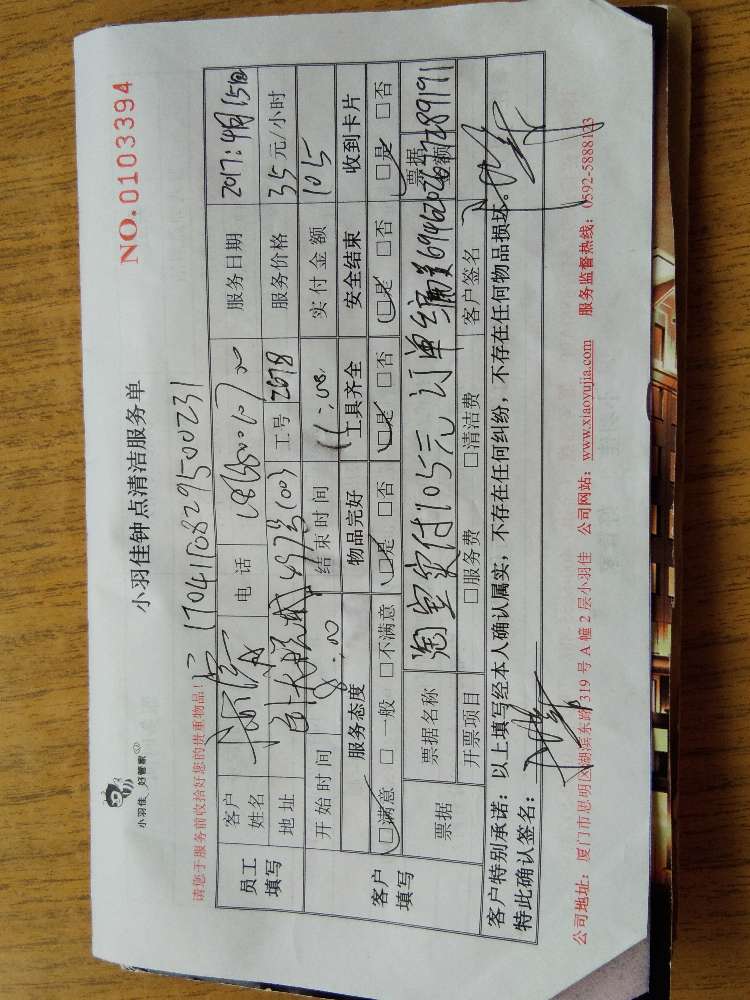 小羽佳 好管家
小羽佳钟点清洁服务单
NO.0103394
请您于服务前收拾好您的贵重物品!
170410829500231
员工填写
客户姓名
电话
服务日期 2017:4月15日
地址
工号 2678
服务价格 35元/小时
开始时间 8:00
结束时间 11:00
实付金额 105
客户填写
服务态度 物品完好 工具齐全 安全结束 收到卡片
□满意 □一般 □不满意 □是 □否 □是 □否 □是 □否 □是 □否
票据 票据名称 淘宝实付105元 订单编号 票据金额
开票项目 □服务费 □清洁费 客户签名
客户特别承诺:以上填写经本人确认属实,不存在任何纠纷,不存在任何物品损坏。
特此确认签名:
公司地址:厦门市思明区湖滨东路319号A幢2层小羽佳 公司网站:www.xiaoyujia.com 服务监督热线:0592-5888123